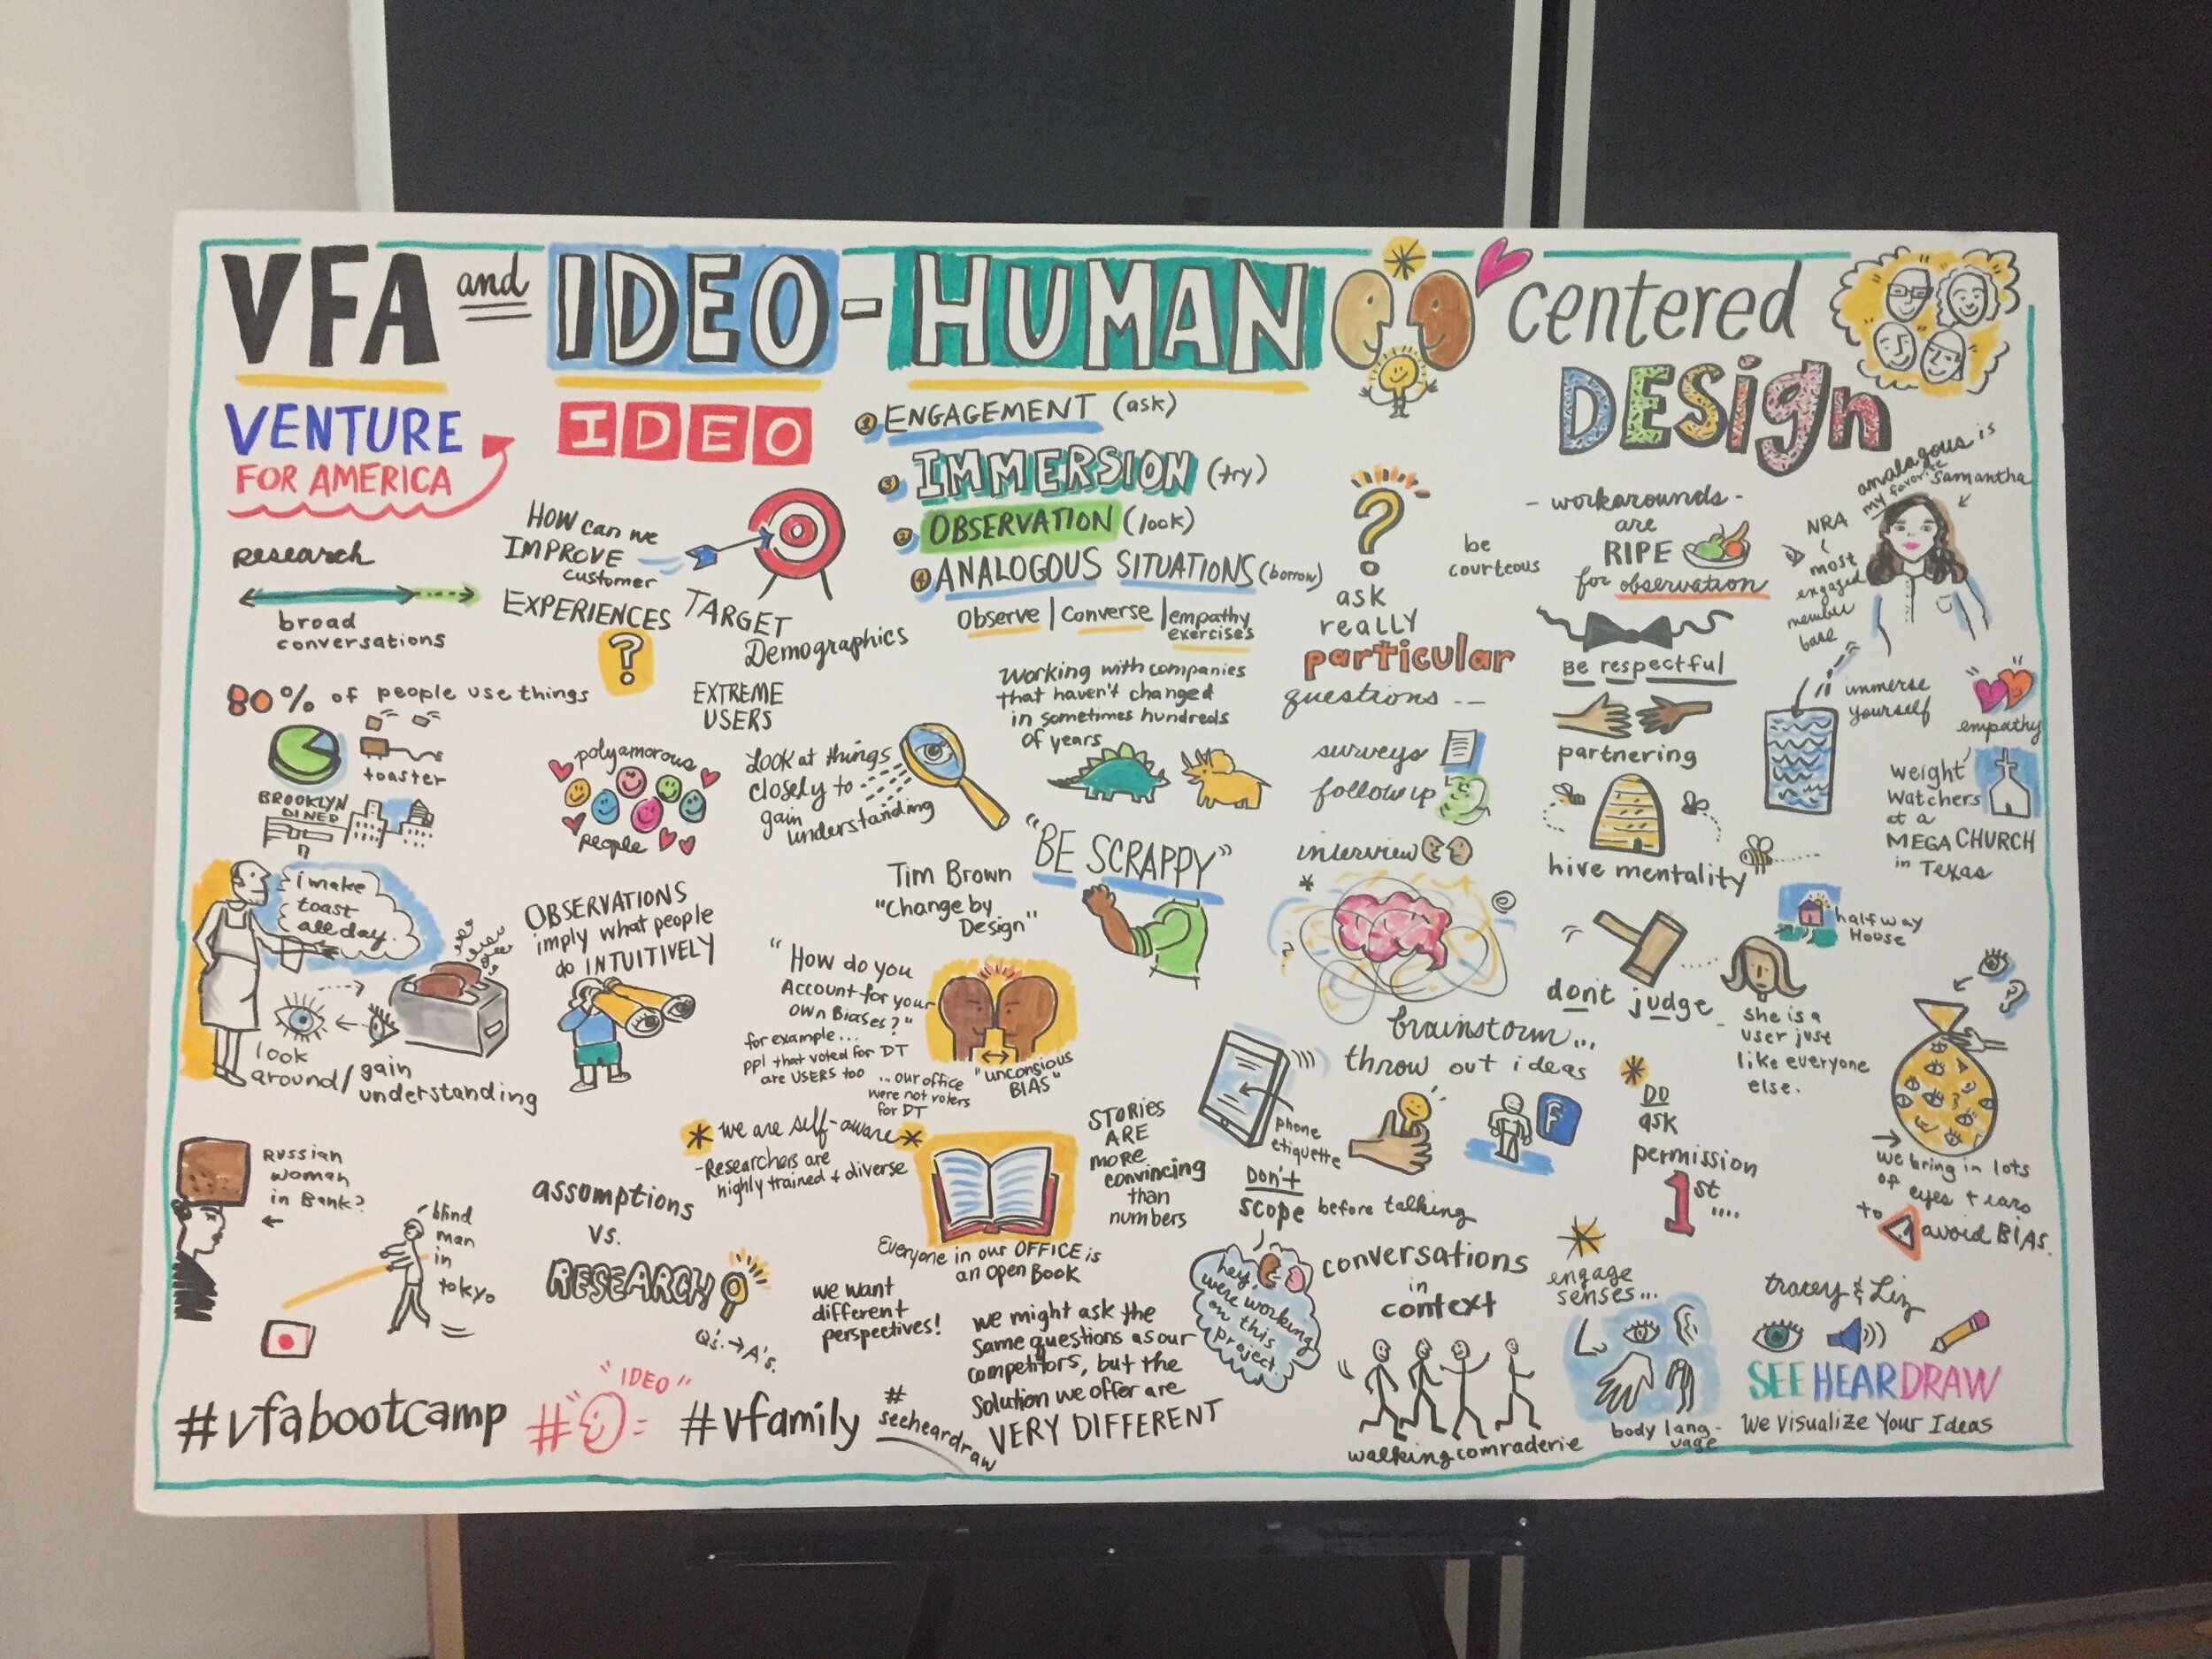 VFA and IDEO - HUMAN centered
DESign
VENTURE
FOR AMERICA
IDEO
research
broad
conversations
HOW can we
IMPROVE
customer
EXPERIENCES
?
TARGET
Demographics
EXTREME
USERS
80% of people use things
toaster
BROOKLYN
DINER
i make
toast
all day.
look
around/gain
understanding
polyamorous
people
Look at things
closely to
gain
understanding
OBSERVATIONS
imply what people
do INTUITIVELY
Russian
woman
in Bank?
blind
man
in
tokyo
assomptions
vs.
RESEARCH
Q's. → A's.
1 ENGAGEMENT (ask)
3 IMMERSION (try)
2 OBSERVATION (look)
4 ANALOGOUS SITUATIONS (borrow)
Observe | Converse | empathy
exercises
Working with companies
that haven't changed
in sometimes hundreds
of years
"BE SCRAPPY"
Tim Brown
"Change by
Design"
"How do you
Account for your
own Biases?"
for example...
ppl that voted for DT
are USERS too
...our office
were not voters
for DT
"unconsious
BIAS"
we are self-aware
-Researchers are
highly trained + diverse
STORIES
ARE
more
convincing
than
numbers
Everyone in our OFFICE is
an open Book
we want
different
perspectives!
we might ask the
same questions as our
competitors, but the
solution we offer are
VERY DIFFERENT
?
ask
really
particular
questions --
be
courteous
surveys
followup
interview
brainstorm...
throw out ideas
phone
etiquette
F
Don't
scope before talking
hey,
we're working
on this
project.
conversations
in
context
walking comraderie
- workarounds -
are
RIPE
for observation
Be respectful
partnering
hive mentality
dont judge
halfway
House
she is a
user just
like everyone
else.
DO
ask
permission
1st....
engage
senses...
body lang-
uage
analagous is
my favorite
Samantha
NRA
most
engaged
member
base
immerse
yourself
empathy
weight
watchers
at a
MEGA CHURCH
in Texas
→ we bring in lots
of eyes + ears
to avoid BIAS.
tracey & Liz
SEE HEAR DRAW
We Visualize Your Ideas
#vfabootcamp
"IDEO"
#vfamily
#
seeheardraw